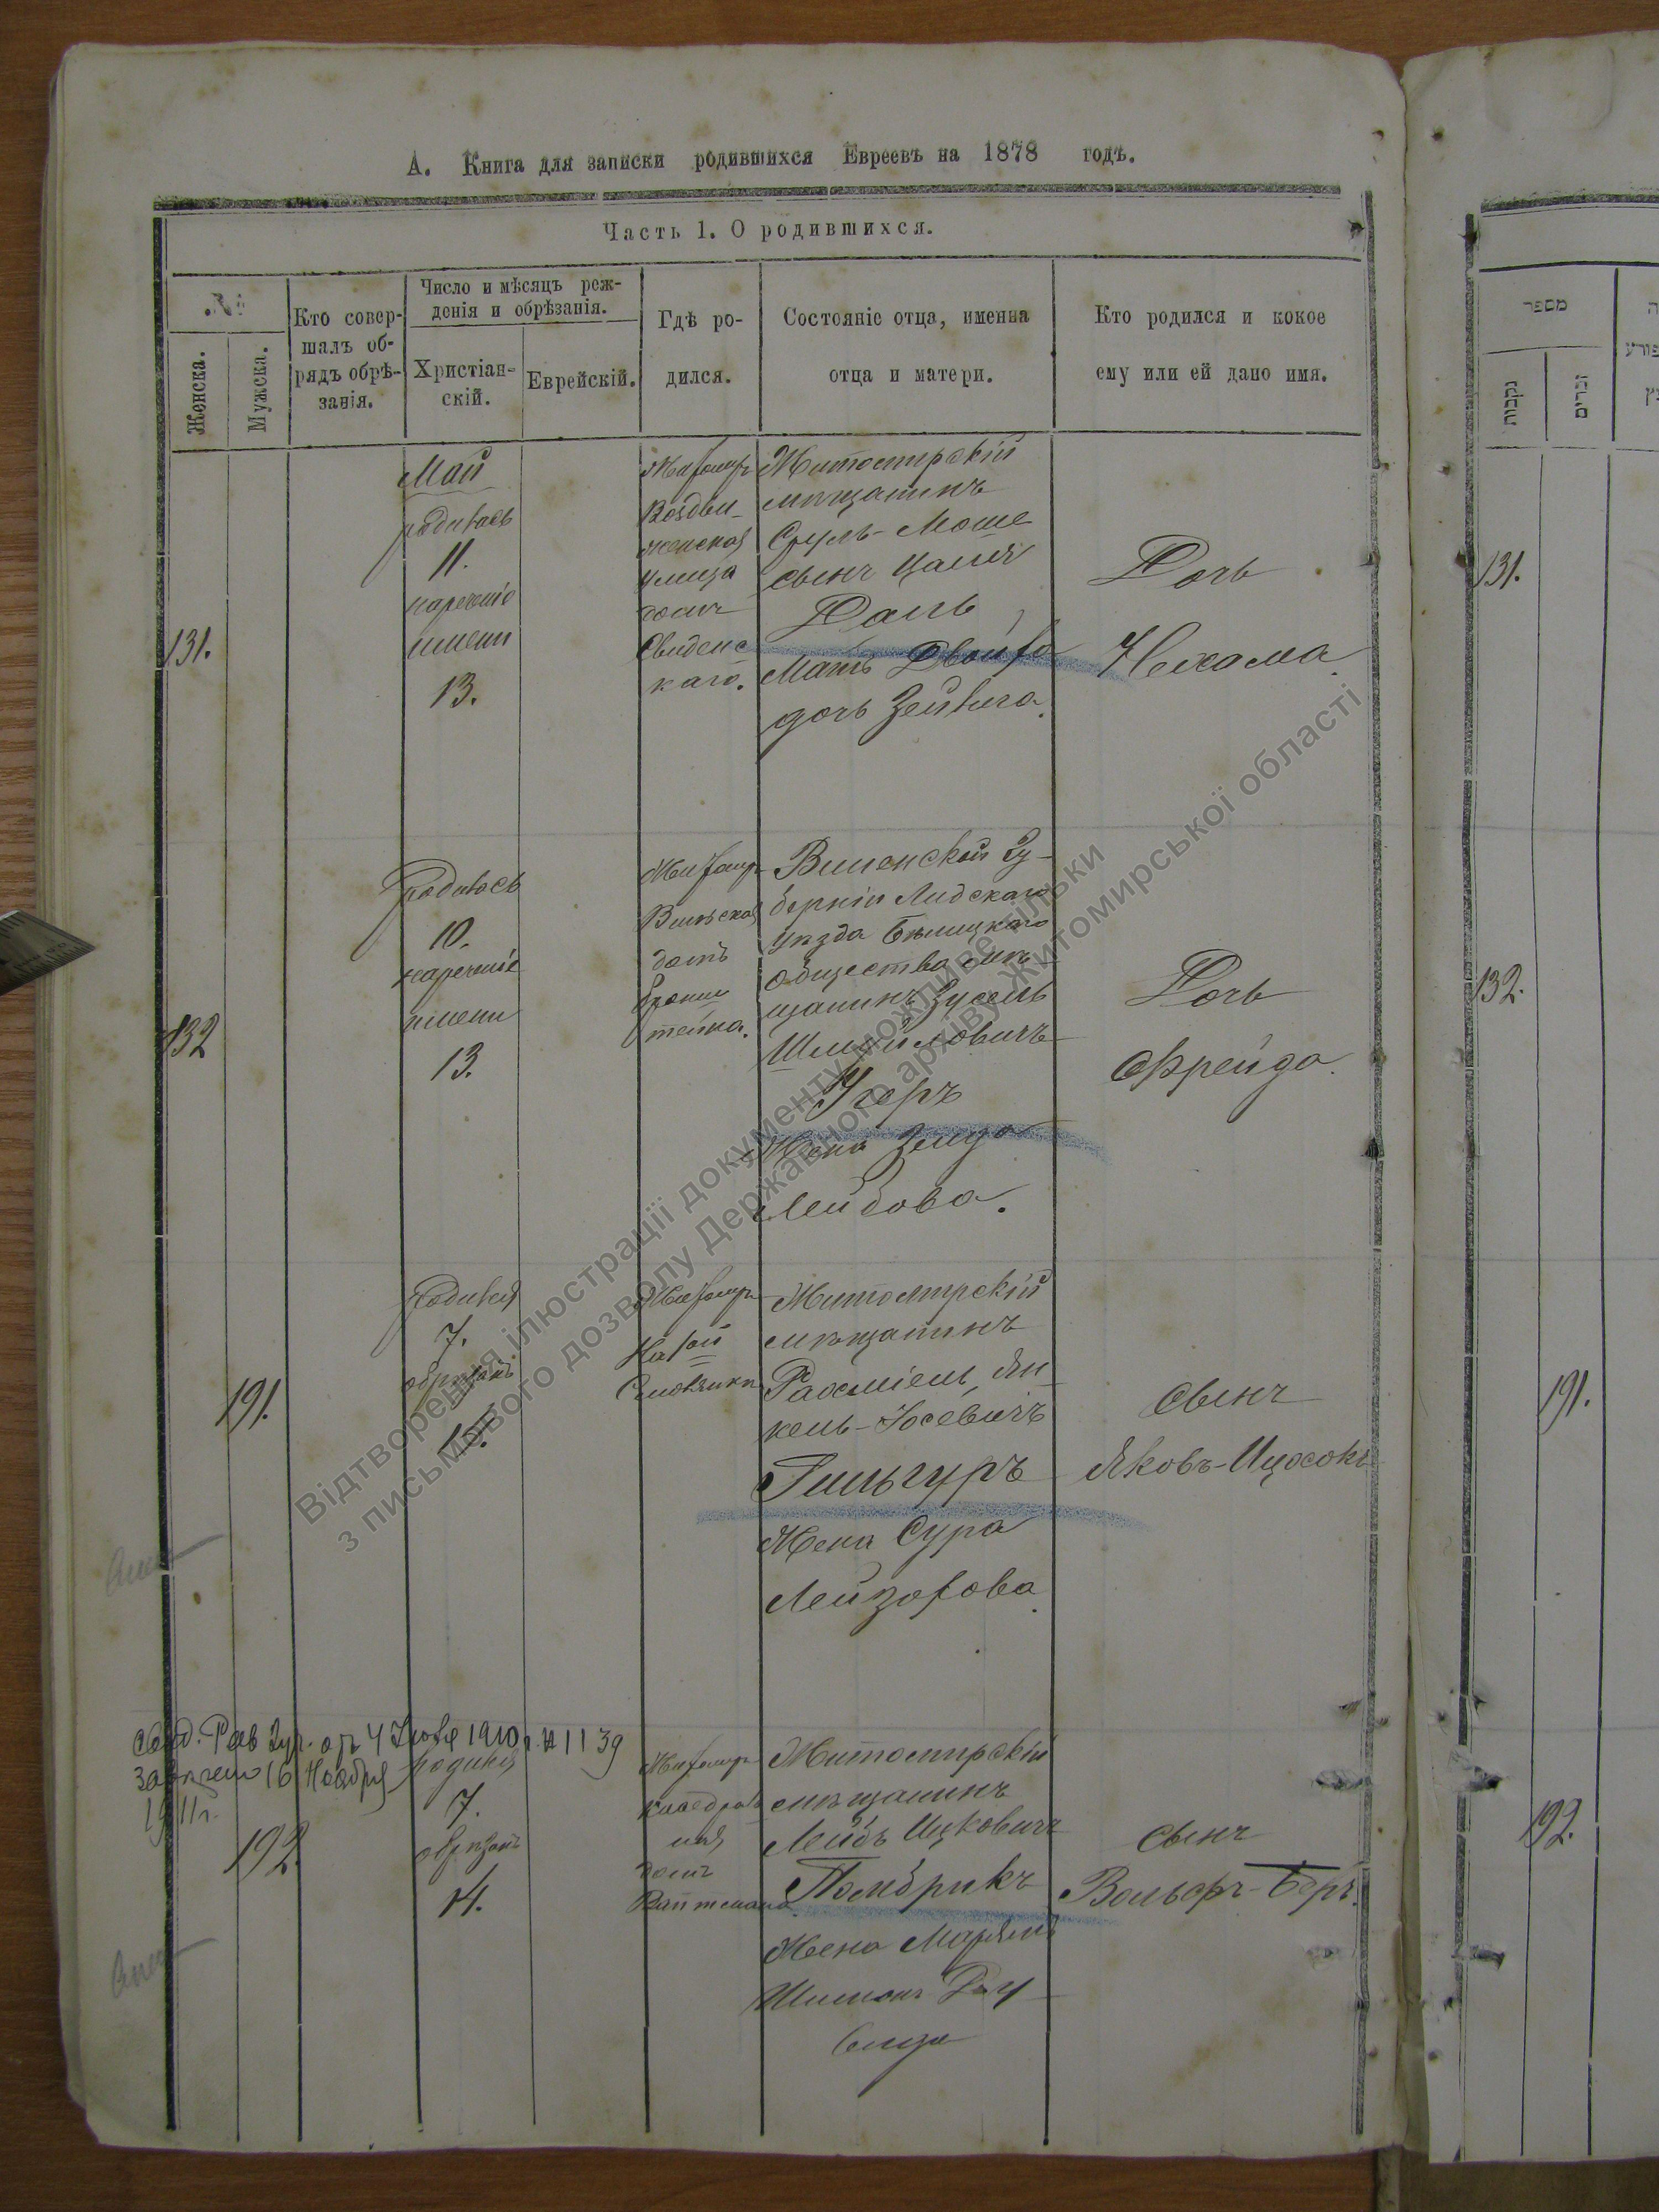 А. Книга для записки родившихся Евреевъ на 1878 годъ.
Часть 1. О родившихся.
№
Женска.
Мужска.
Кто совер-
шалъ об-
рядъ обрѣ-
занія.
Число и мѣсяцъ рож-
денія и обрѣзанія.
Христіан-
скій.
Еврейскій.
Гдѣ ро-
дился.
Состояніе отца, именна
отца и матери.
Кто родился и кокое
ему или ей дано имя.
131.
Май
родилась
11.
наречение
имени
13.
Житомир
Воздви-
женская
улица
домъ
Свиденс
каго.
Житомирскій
мѣщанинъ
Сруль-Моше
сынъ
Даль
Мать Двойра
дочь Зейвига.
Дочь
Нехама
132
родилась
10.
наречение
имени
13.
Житомир
Вильская
домъ
Бронш
тейна.
Виленской Гу-
берніи Лидскаго
уѣзда Бѣлицкаго
общества мѣ-
щанинъ Зусель
Шмуйловичъ
Жена Злида
Лейбова.
Дочь
Фрейда.
191.
родился
7.
обрѣзанъ
14.
Житомир
Житомирскій
мѣщанинъ
Рахміель Ян-
кель-Іосевичъ
Гильгуръ
Жена Сура
Лейзорова
Сынъ
Яковъ-Ицхокъ
Губ. от 4 1910 г. № 1139
16 Ноября
1911г.
192.
родился
7.
обрѣзанъ
14.
Житомир
кафедраль
ная
домъ
Житомирскій
мѣщанинъ
Лейбъ Ицковичъ
Помбрикъ
Жена Марьямъ
Сынъ
Вольфъ-Беръ.
מספר
נקבות
זכרים
131.
132.
191.
192.
Відтворення ілюстрації документу можливе тільки
з письмового дозволу Державного архіву Житомирської області